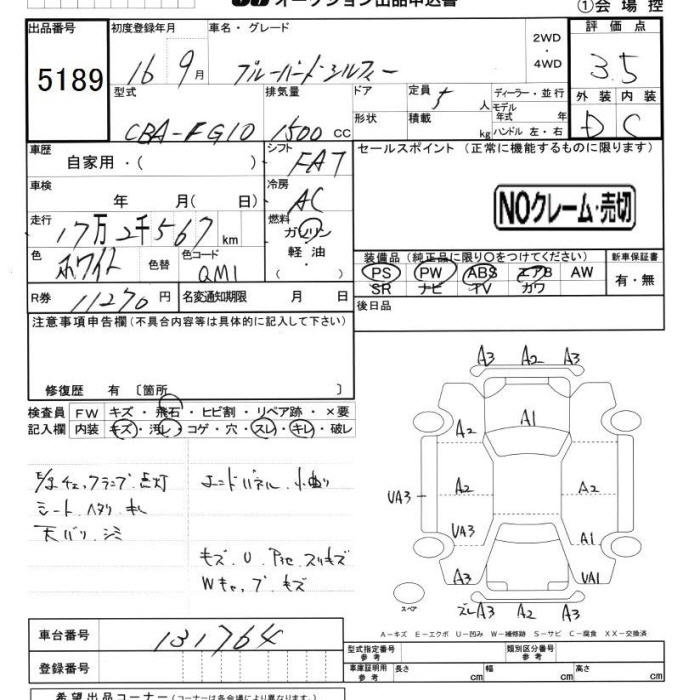 オークション出品申込書
①会場控
出品番号
5189
初度登録年月
16 9月
車名・グレード
ブルーバードシルフィー
2WD
・
4WD
評価点
3.5
型式
CBA-FG10
排気量
1500 cc
ドア
形状
定員
5 人
積載
kg
ディーラー・並行
モデル
年式 年
ハンドル 左・右
外装
D
内装
C
車歴
自家用・( )
シフト
FAT
車検
年 月( 日)
冷房
AC
走行
17万2千567 km
燃料
ガソリン
軽油・
( )
色
ホワイト
色替
色コード
QM1
R券
11270 円
名変通知期限 月 日
セールスポイント (正常に機能するものに限ります)
NOクレーム・売切
装備品(純正品に限り〇をつけてください)
新車保証書
PS PW ABS エアB AW
SR ナビ TV カワ
有・無
後日品
注意事項申告欄(不具合内容等は具体的に記入して下さい)
修復歴 有 〔箇所 〕
検査員
記入欄
FW キズ・飛石・ヒビ割・リペア跡・×要
内装 キズ・汚レ・コゲ・穴・スレ・キレ・破レ
E/gチェックランプ点灯
シート ヘタリ キレ
天バリ シミ
エンドパネル 小曲り
キズ U スリキズ
Wキャップ キズ
A3 A2 A3
A1
A2
UA3 A2 A2
UA3 A1
A3 UA1
スペア
ズレA3 A2 A3
A-キズ E-エクボ U-凹み W-補修跡 S-サビ C-腐食 XX-交換済
車台番号
131764
登録番号
型式指定番号
参考
類別区分番号
参考
車庫証明用
参考
長さ cm
幅 cm
高さ cm
希望出品コーナー(コーナーは各会場により異なります。)